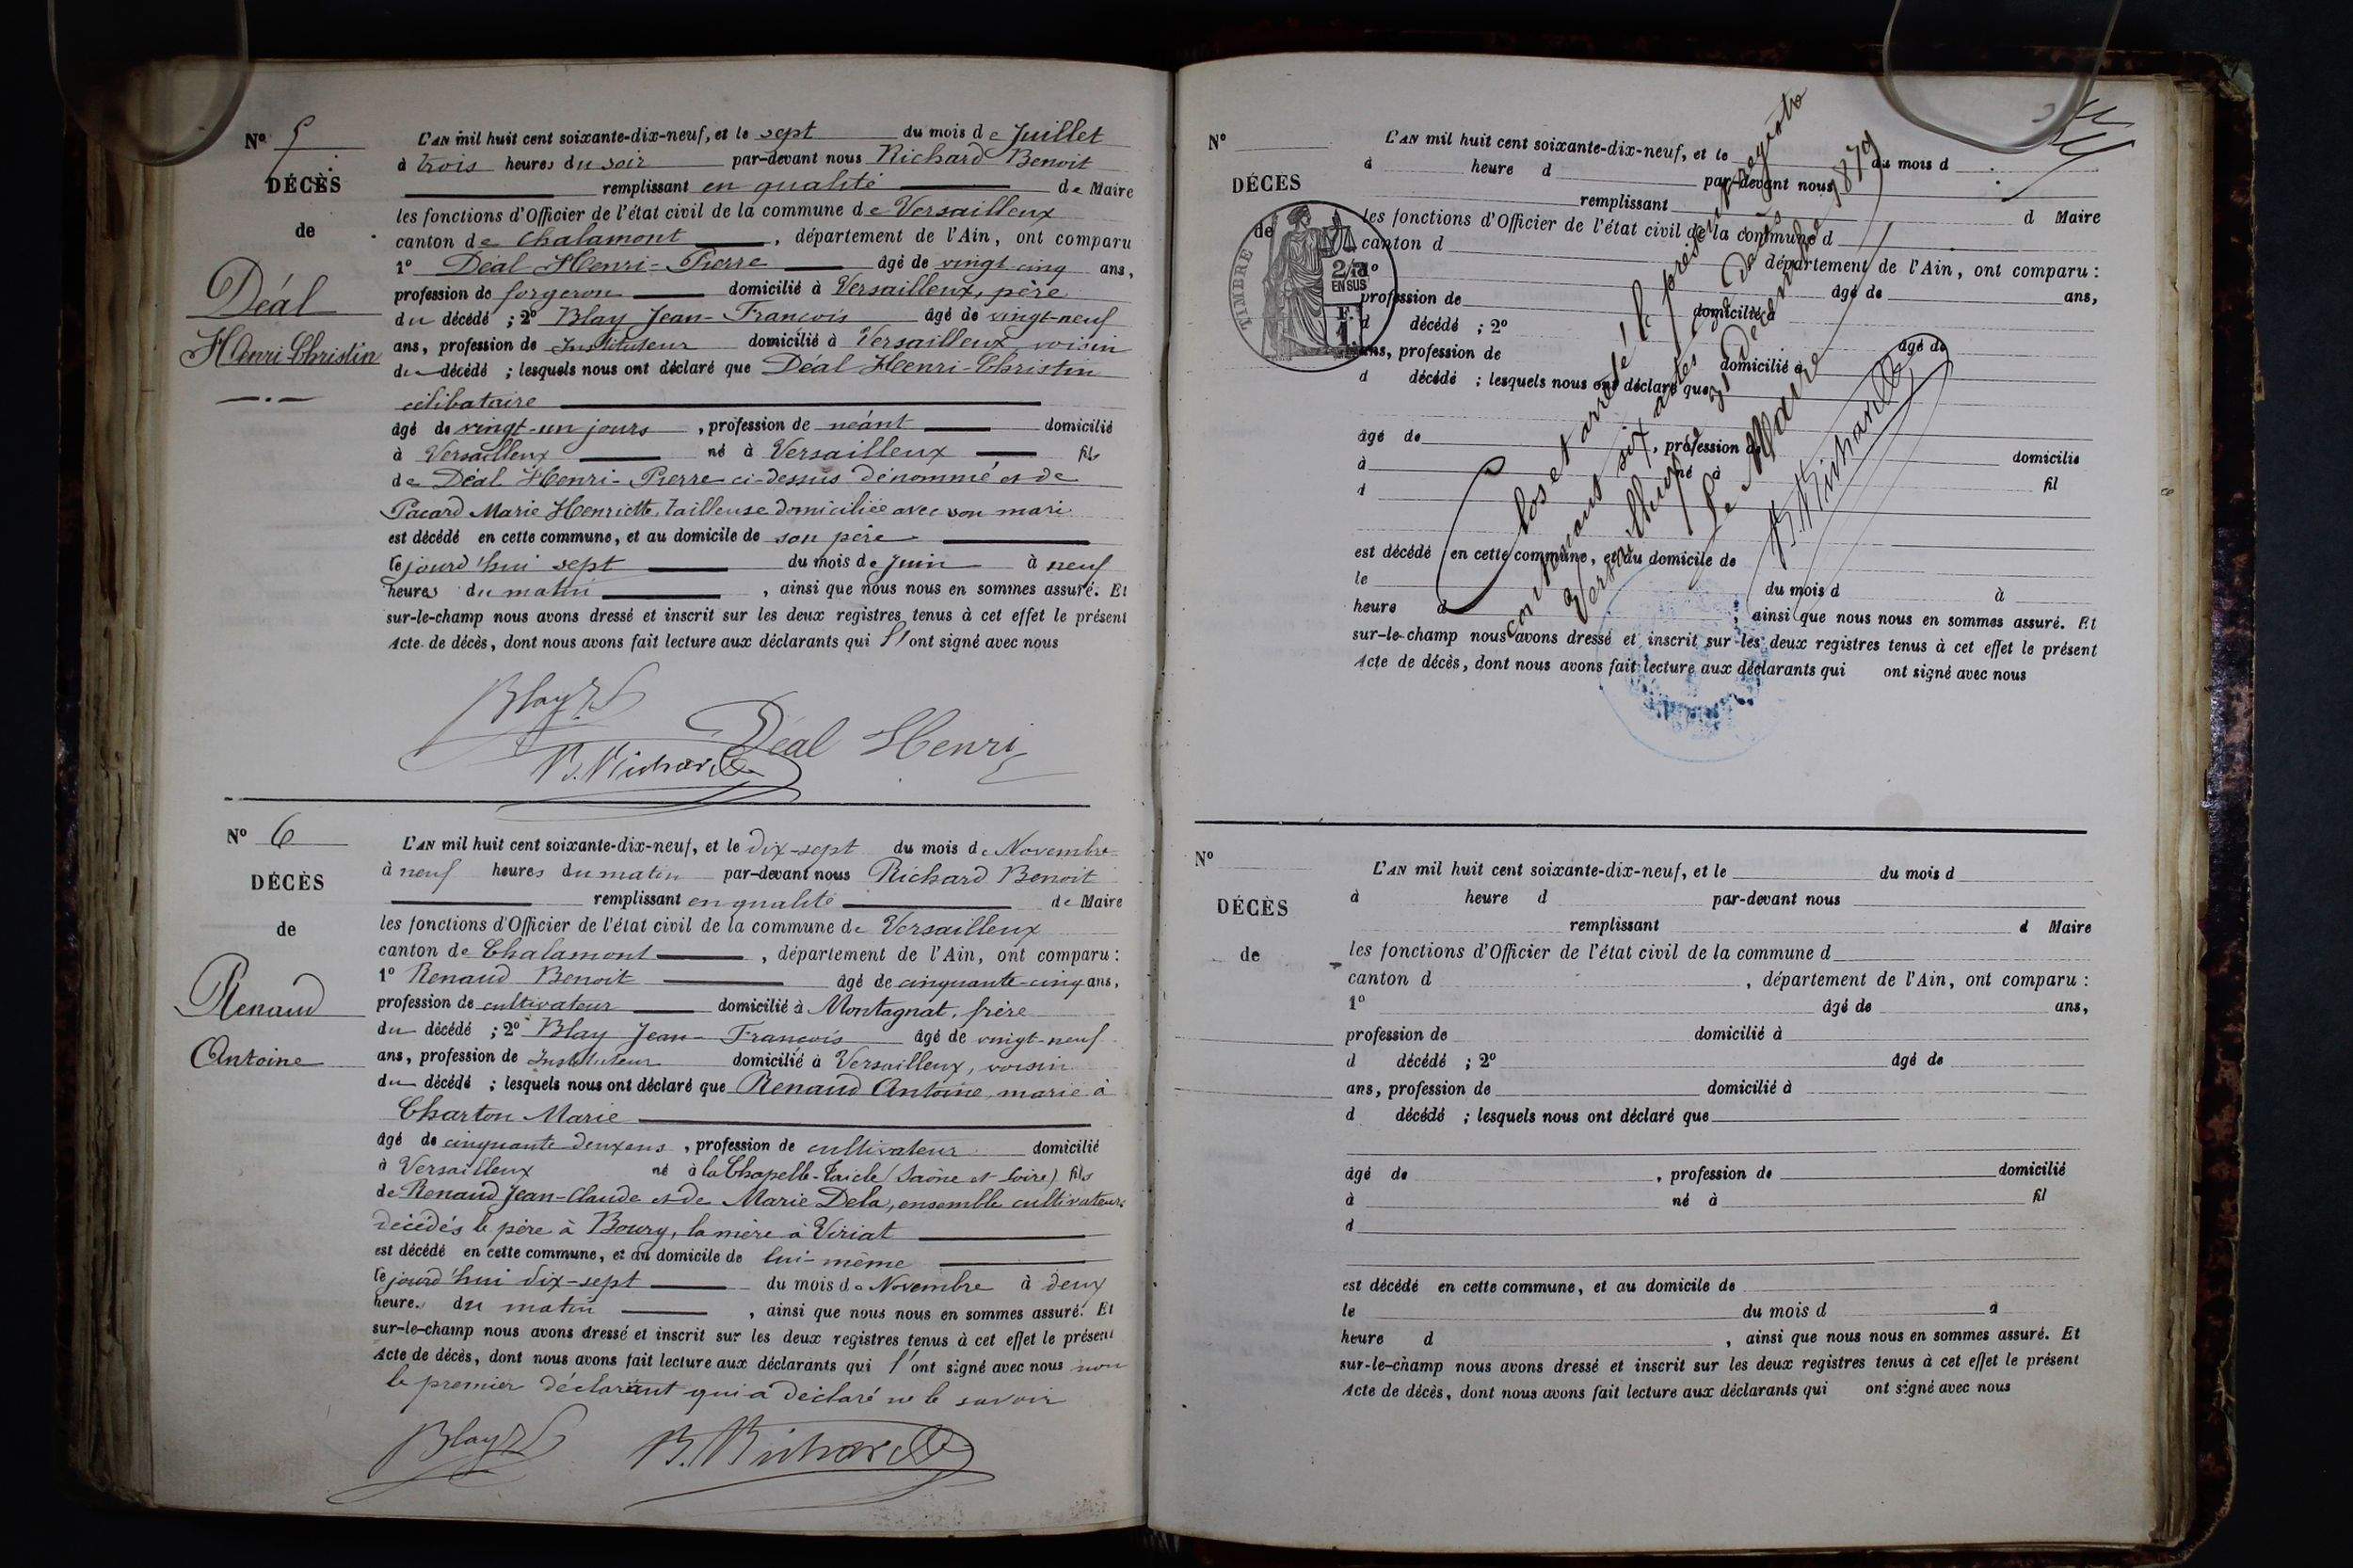 Nº 5
DÉCÈS
de
Déal
Henri Christin
L'AN mil huit cent soixante-dix-neuf, et le sept du mois de Juillet
à trois heures du soir par-devant nous Richard Benoit
remplissant en qualité de Maire
les fonctions d'Officier de l'état civil de la commune de Versailleux
canton de Chalamont, département de l'Ain, ont comparu
1º Déal Henri-Pierre âgé de vingt cinq ans,
profession de forgeron domicilié à Versailleux, père
du décédé ; 2º Blay Jean-François âgé de vingt-neuf
ans, profession de Instituteur domicilié à Versailleux voisin
du décédé ; lesquels nous ont déclaré que Déal Henri-Christin
célibataire
âgé de vingt-un jours, profession de néant domicilié
à Versailleux né à Versailleux fils
de Déal Henri-Pierre ci-dessus dénommé et de
Pacard Marie Henriette, tailleuse domiciliée avec son mari
est décédé en cette commune, et au domicile de son père
le jourd'hui sept du mois de Juin à neuf
heures du matin, ainsi que nous nous en sommes assuré. Et
sur-le-champ nous avons dressé et inscrit sur les deux registres tenus à cet effet le présent
Acte de décès, dont nous avons fait lecture aux déclarants qui l'ont signé avec nous
Blay
Déal Henri
B. Richard
Nº 6
DÉCÈS
de
Renaud
Antoine
L'AN mil huit cent soixante-dix-neuf, et le dix-sept du mois de Novembre
à neuf heures du matin par-devant nous Richard Benoit
remplissant en qualité de Maire
les fonctions d'Officier de l'état civil de la commune de Versailleux
canton de Chalamont, département de l'Ain, ont comparu :
1º Renaud Benoit âgé de cinquante-cinq ans,
profession de cultivateur domicilié à Montagnat, frère
du décédé ; 2º Blay Jean-François âgé de vingt-neuf
ans, profession de Instituteur domicilié à Versailleux, voisin
du décédé ; lesquels nous ont déclaré que Renaud Antoine, marié à
Charton Marie
âgé de cinquante deux ans, profession de cultivateur domicilié
à Versailleux né à la Chapelle-Taicle (Saône et Loire) fils
de Renaud Jean-Claude et de Marie Dela, ensemble cultivateurs
décédés le père à Bourg, la mère à Viriat
est décédé en cette commune, et au domicile de lui-même
le jourd'hui dix-sept du mois de Novembre à deux
heures du matin, ainsi que nous nous en sommes assuré. Et
sur-le-champ nous avons dressé et inscrit sur les deux registres tenus à cet effet le présent
Acte de décès, dont nous avons fait lecture aux déclarants qui l'ont signé avec nous non
le premier déclarant qui a déclaré ne le savoir
Blay
B. Richard
Nº
DÉCÈS
de
TIMBRE
2/10
EN SUS
1 F.
L'AN mil huit cent soixante-dix-neuf, et le du mois d
à heure d par-devant nous
remplissant d Maire
les fonctions d'Officier de l'état civil de la commune d
canton d département de l'Ain, ont comparu :
1º âgé de ans,
profession de domicilié à
d décédé ; 2º âgé de
ans, profession de domicilié à
d décédé ; lesquels nous ont déclaré que
âgé de, profession de domicilié
à né à fil
d
est décédé en cette commune, et au domicile de
le du mois d à
heure d, ainsi que nous nous en sommes assuré. Et
sur-le-champ nous avons dressé et inscrit sur les deux registres tenus à cet effet le présent
Acte de décès, dont nous avons fait lecture aux déclarants qui ont signé avec nous
Clos et arrêté le présent registre
contenant six actes de décès
Versailleux 31 Décembre 1879
Le Maire
B. Richard
Nº
DÉCÈS
de
L'AN mil huit cent soixante-dix-neuf, et le du mois d
à heure d par-devant nous
remplissant d Maire
les fonctions d'Officier de l'état civil de la commune d
canton d, département de l'Ain, ont comparu :
1º âgé de ans,
profession de domicilié à
d décédé ; 2º âgé de
ans, profession de domicilié à
d décédé ; lesquels nous ont déclaré que
âgé de, profession de domicilié
à né à fil
d
est décédé en cette commune, et au domicile de
le du mois d à
heure d, ainsi que nous nous en sommes assuré. Et
sur-le-champ nous avons dressé et inscrit sur les deux registres tenus à cet effet le présent
Acte de décès, dont nous avons fait lecture aux déclarants qui ont signé avec nous